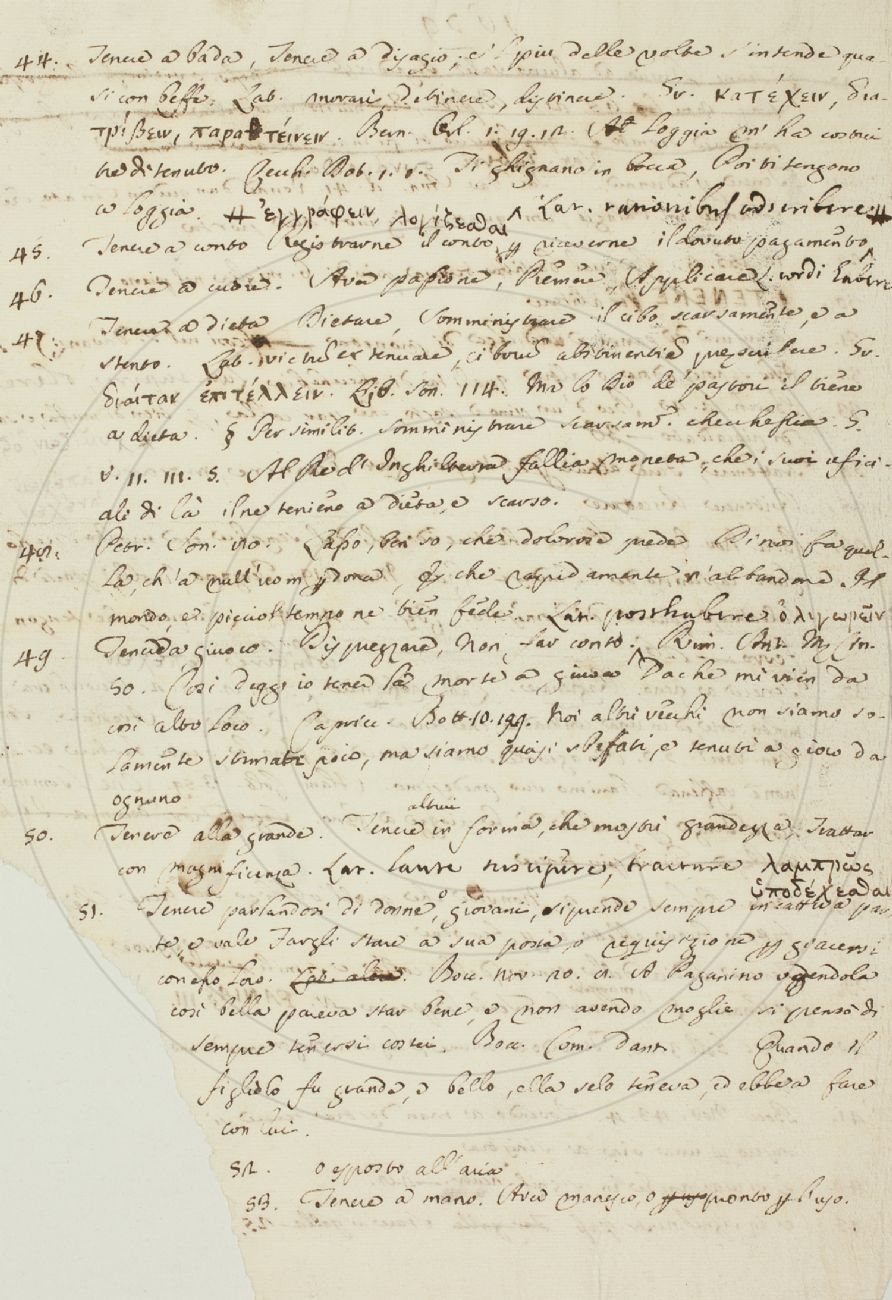 44. Tenere a bada, Tenere a disagio; e 'l più delle volte s'intende qua-
si con beffe. Lat. morari, detinere, distinere. Gr. κατέχειν, δια-
τρίβειν, παρατείνειν. Bern. Orl. 1. 19. 12. A loggia m'ha costui
tre dì tenuto. Cecch. Dot. 1. 1. Ti ghignano in bocca, Poi ti tengono
a loggia. # ἐγγράφειν, λογίζεσθαι ^ Lat. rationibus adscribere #
45. Tenere a conto Registrarne il conto, p riceverne il dovuto pagamento
46. Tenere a cuore. Aver passione, Premere, Applicare L. cordi habere
47. Tenere a dieta Dietare, Somministrare il cibo scarsamente, e a
stento. Lat. victu extenuare, cibi abstinentia Gr.
δίαιταν ἐπιτέλλειν. Lib. Son. 114. Ma lo Dio de' pastori il tiene
a dieta. § Per similit. somministrare scarsam. checchessia. G.
V. 11. 111. 5. Al Re d'Inghilterra fallia moneta, che i suoi ufici-
ali di là il ne tenieno a dieta, e scarso.
48. Petr. Son. Lasso, ben so, che dolorose prede Di noi fa quel-
la, ch'a null'uom pdona, E che rapidamente n'abbandona Il
mondo, e picciol tempo ne tien fede. Lat. posthabere ὀλιγωρεῖν
49. Tener da giuoco. Disprezzare, Non far conto. Rim. Ant. M. Cin.
50. Così deggio tener la morte a giuoco Da che mi vien da
così alto loco. Capricc. Bott. 10. 199. Noi altri vecchi non siamo so-
lamente stimati poco, ma siamo quasi sbeffati, e tenuti a gioco da
ognuno
50. Tenere alla grande. Tenere altrui in forma, che mostri grandezza, Trattar
con magnificenza. Lat. laute suscipere, tractare λαμπρῶς
ὑποδέχεσθαι
51. Tenere parlandosi di donne, o giovani, si prende sempre in cattiva par-
te, e vale Fargli stare a sua posta, o requisizione p giacersi
con esso loro. Bocc. nov. 20. A Paganino vedendola
così bella pareva star bene, e non avendo moglie si pensò di
sempre tenersi costei. Bocc. Com. Dant. Quando il
figliolo fu grande, e bello, ella selo teneva, ed ebbe a fare
con lui.
52. o esposto all'aria
53. Tenere a mano. Aver manesco, o pronto p l'uso.